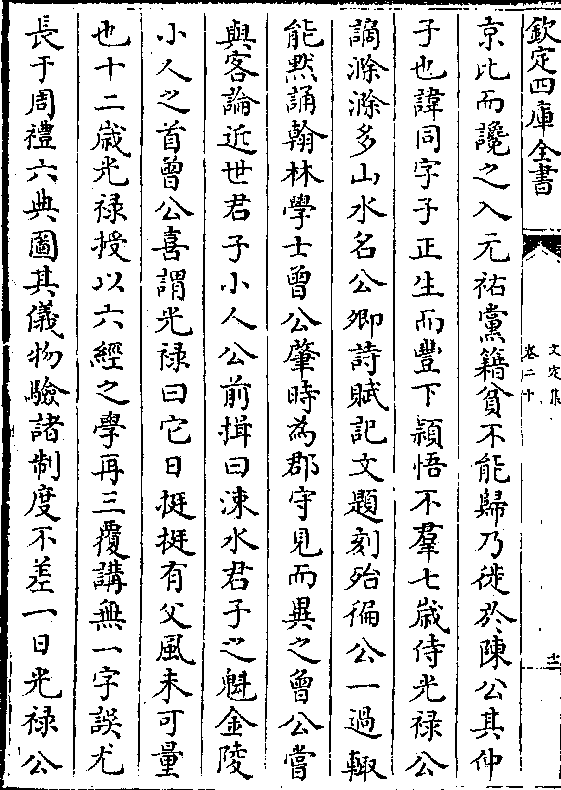 欽定四庫全書
文定集
卷二十
京比而讒之入元祐黨籍貧不能歸乃徙於陳公其仲
子也諱同字子正生而豐下穎悟不羣七歲侍光祿公
謫滁滁多山水名公卿詩賦記文題刻殆徧公一過輙
能黙誦翰林學士曾公肇時為郡守見而異之曾公嘗
與客論近世君子小人公前揖曰涑水君子之魁金陵
小人之首曾公喜謂光祿曰它日挺挺有父風未可量
也十二歲光祿授以六經之學再三覆講無一字誤尤
長于周禮六典圖其儀物驗諸制度不差一日光祿公